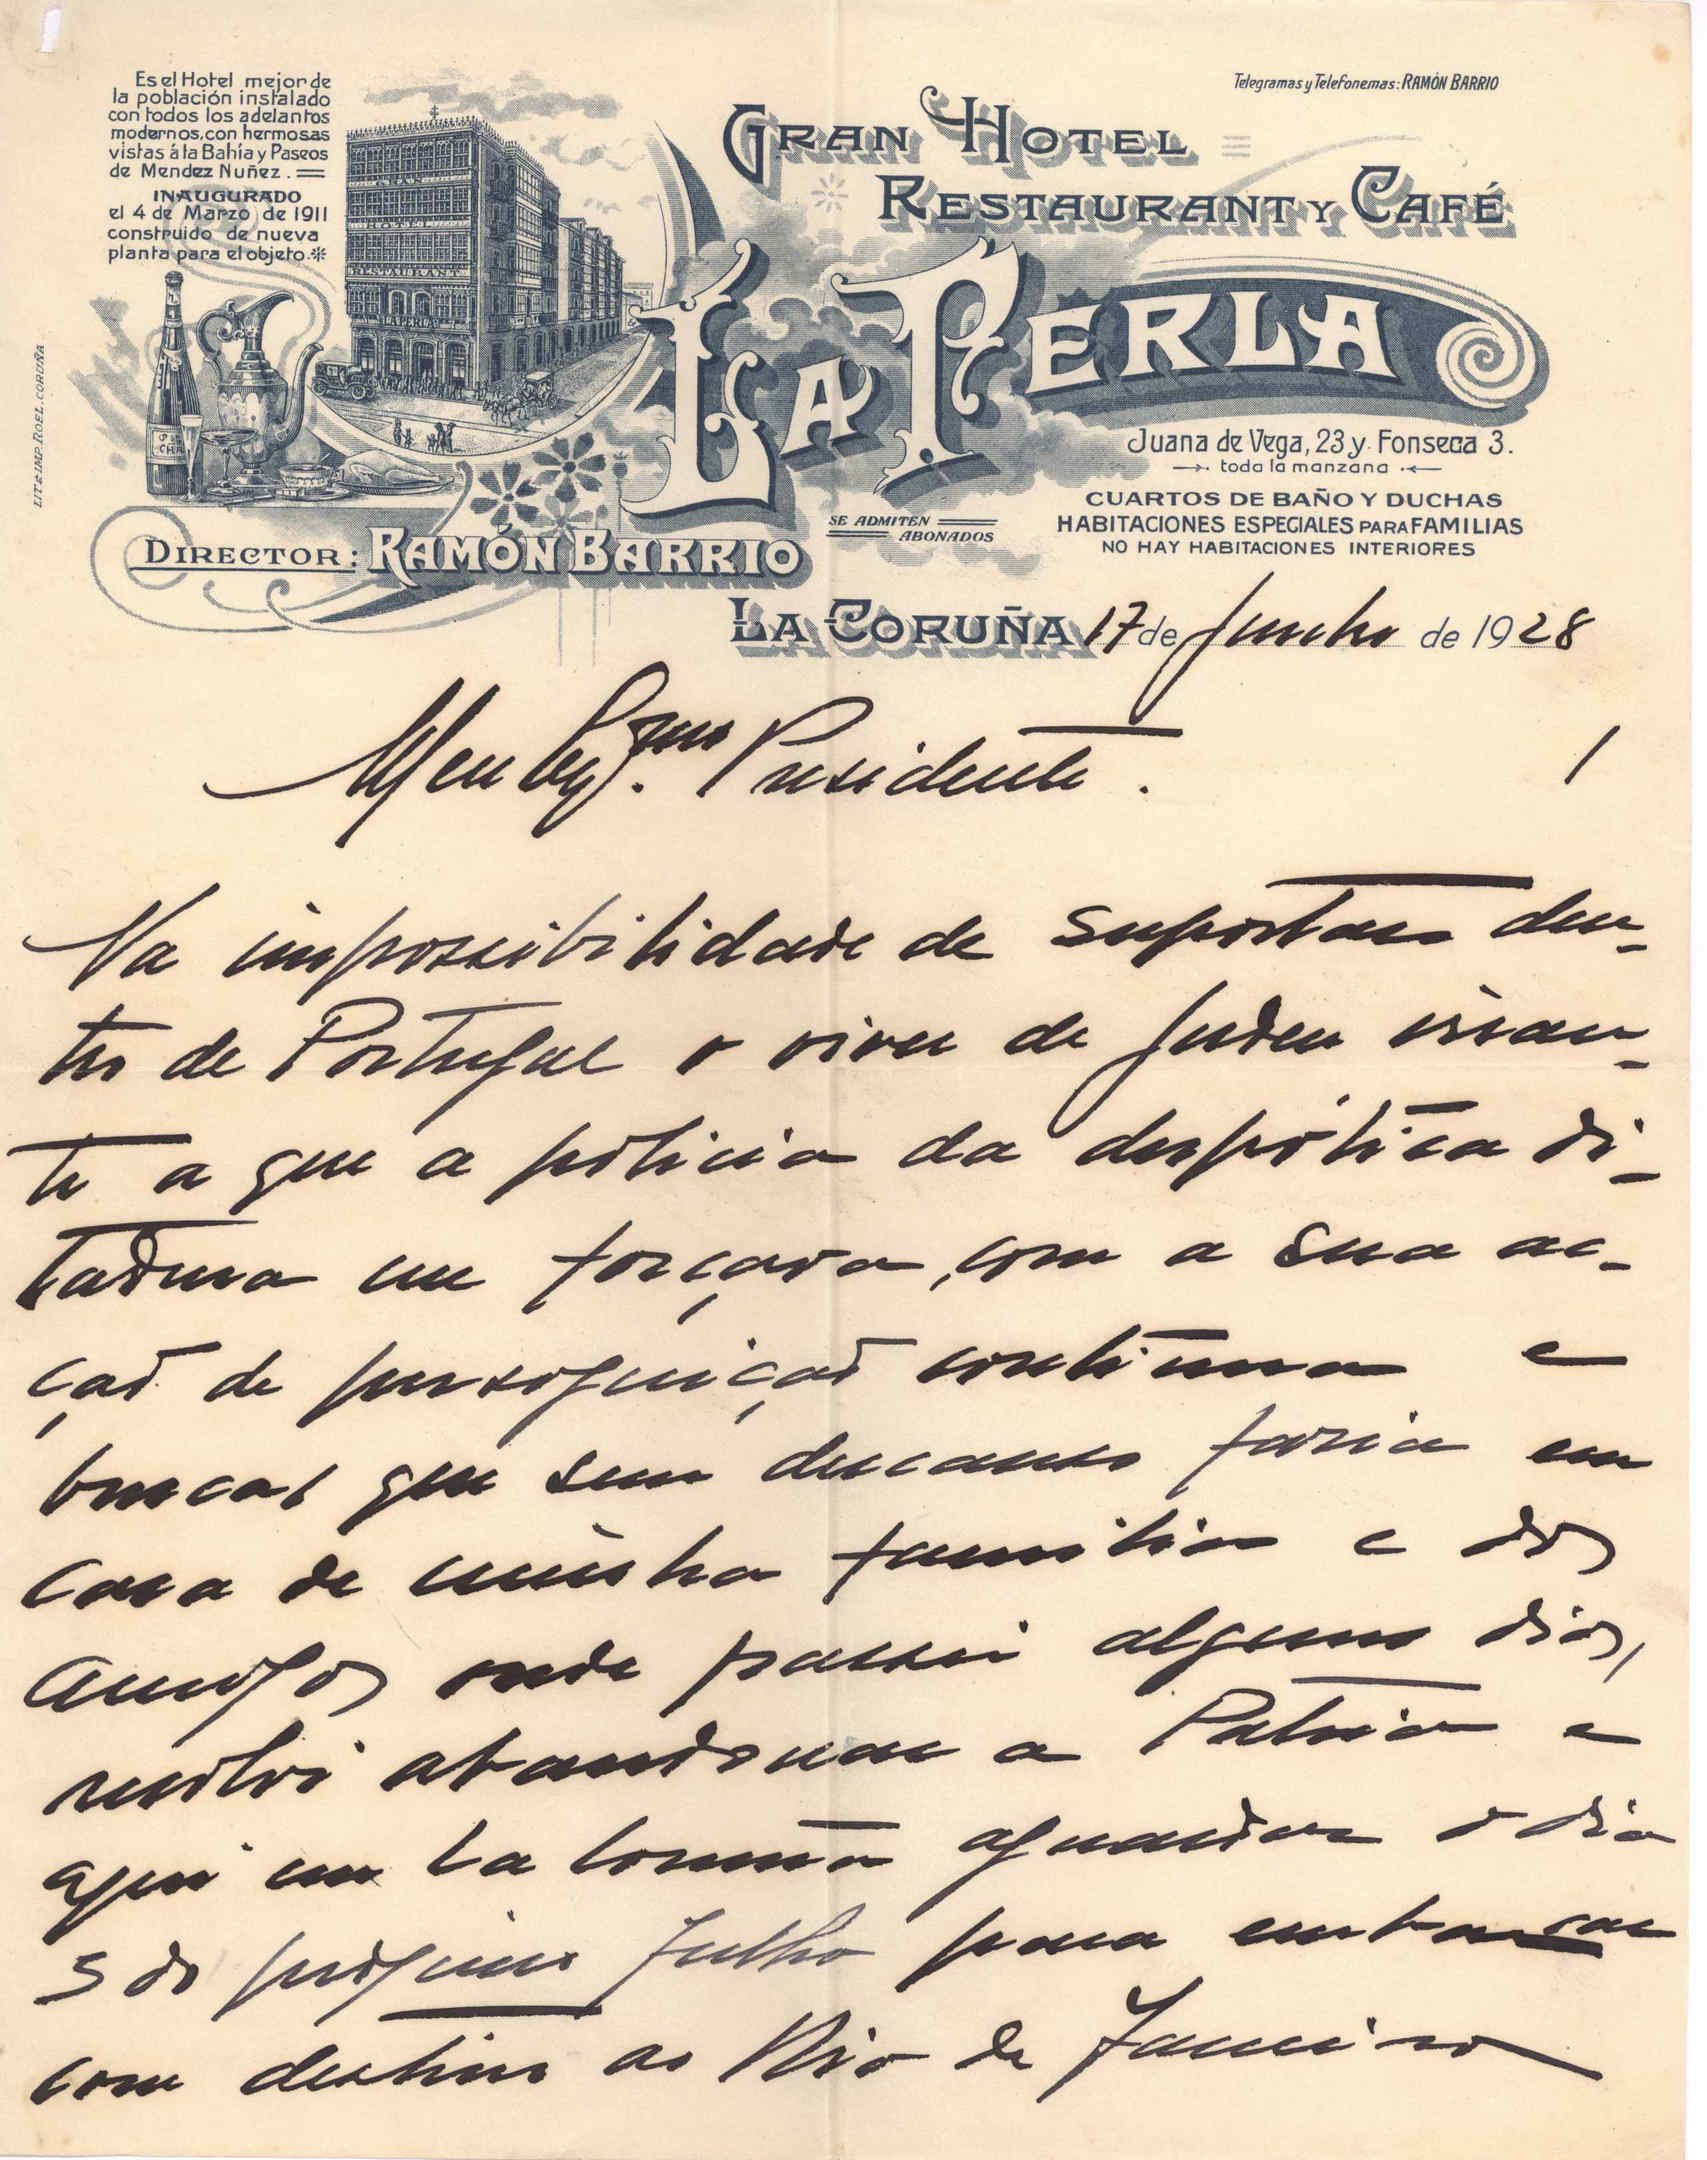 Es el Hotel mejor de
la población instalado
con todos los adelantos
modernos, con hermosas
vistas á la Bahía y Paseos
de Mendez Nuñez.
INAUGURADO
el 4 de Marzo de 1911
construido de nueva
planta para el objeto.
Telegramas y Telefonemas: RAMÓN BARRIO
GRAN HOTEL
RESTAURANT Y CAFÉ
LA PERLA
HOTEL
RESTAURANT
LA PERLA
LIT. é IMP. ROEL. CORUÑA
Juana de Vega, 23 y Fonseca 3.
toda la manzana
CUARTOS DE BAÑO Y DUCHAS
HABITACIONES ESPECIALES PARA FAMILIAS
NO HAY HABITACIONES INTERIORES
SE ADMITEN
ABONADOS
DIRECTOR: RAMÓN BARRIO
LA CORUÑA 17 de Junho de 1928
Meu Exmo. Presidente.
Na impossibilidade de suportar den-
tro de Portugal o viver de judeu erran-
te a que a policia da despótica di-
tadura me forçava, com a sua ac-
ção de perseguição contínua e
buscas que sem descanso fazia em
casa de minha familia e dos
amigos onde passei alguns dias,
resolvi abandonar a Patria e
aqui em La Coruña aguardar o dia
5 do próximo Julho para embarcar
com destino ao Rio de Janeiro